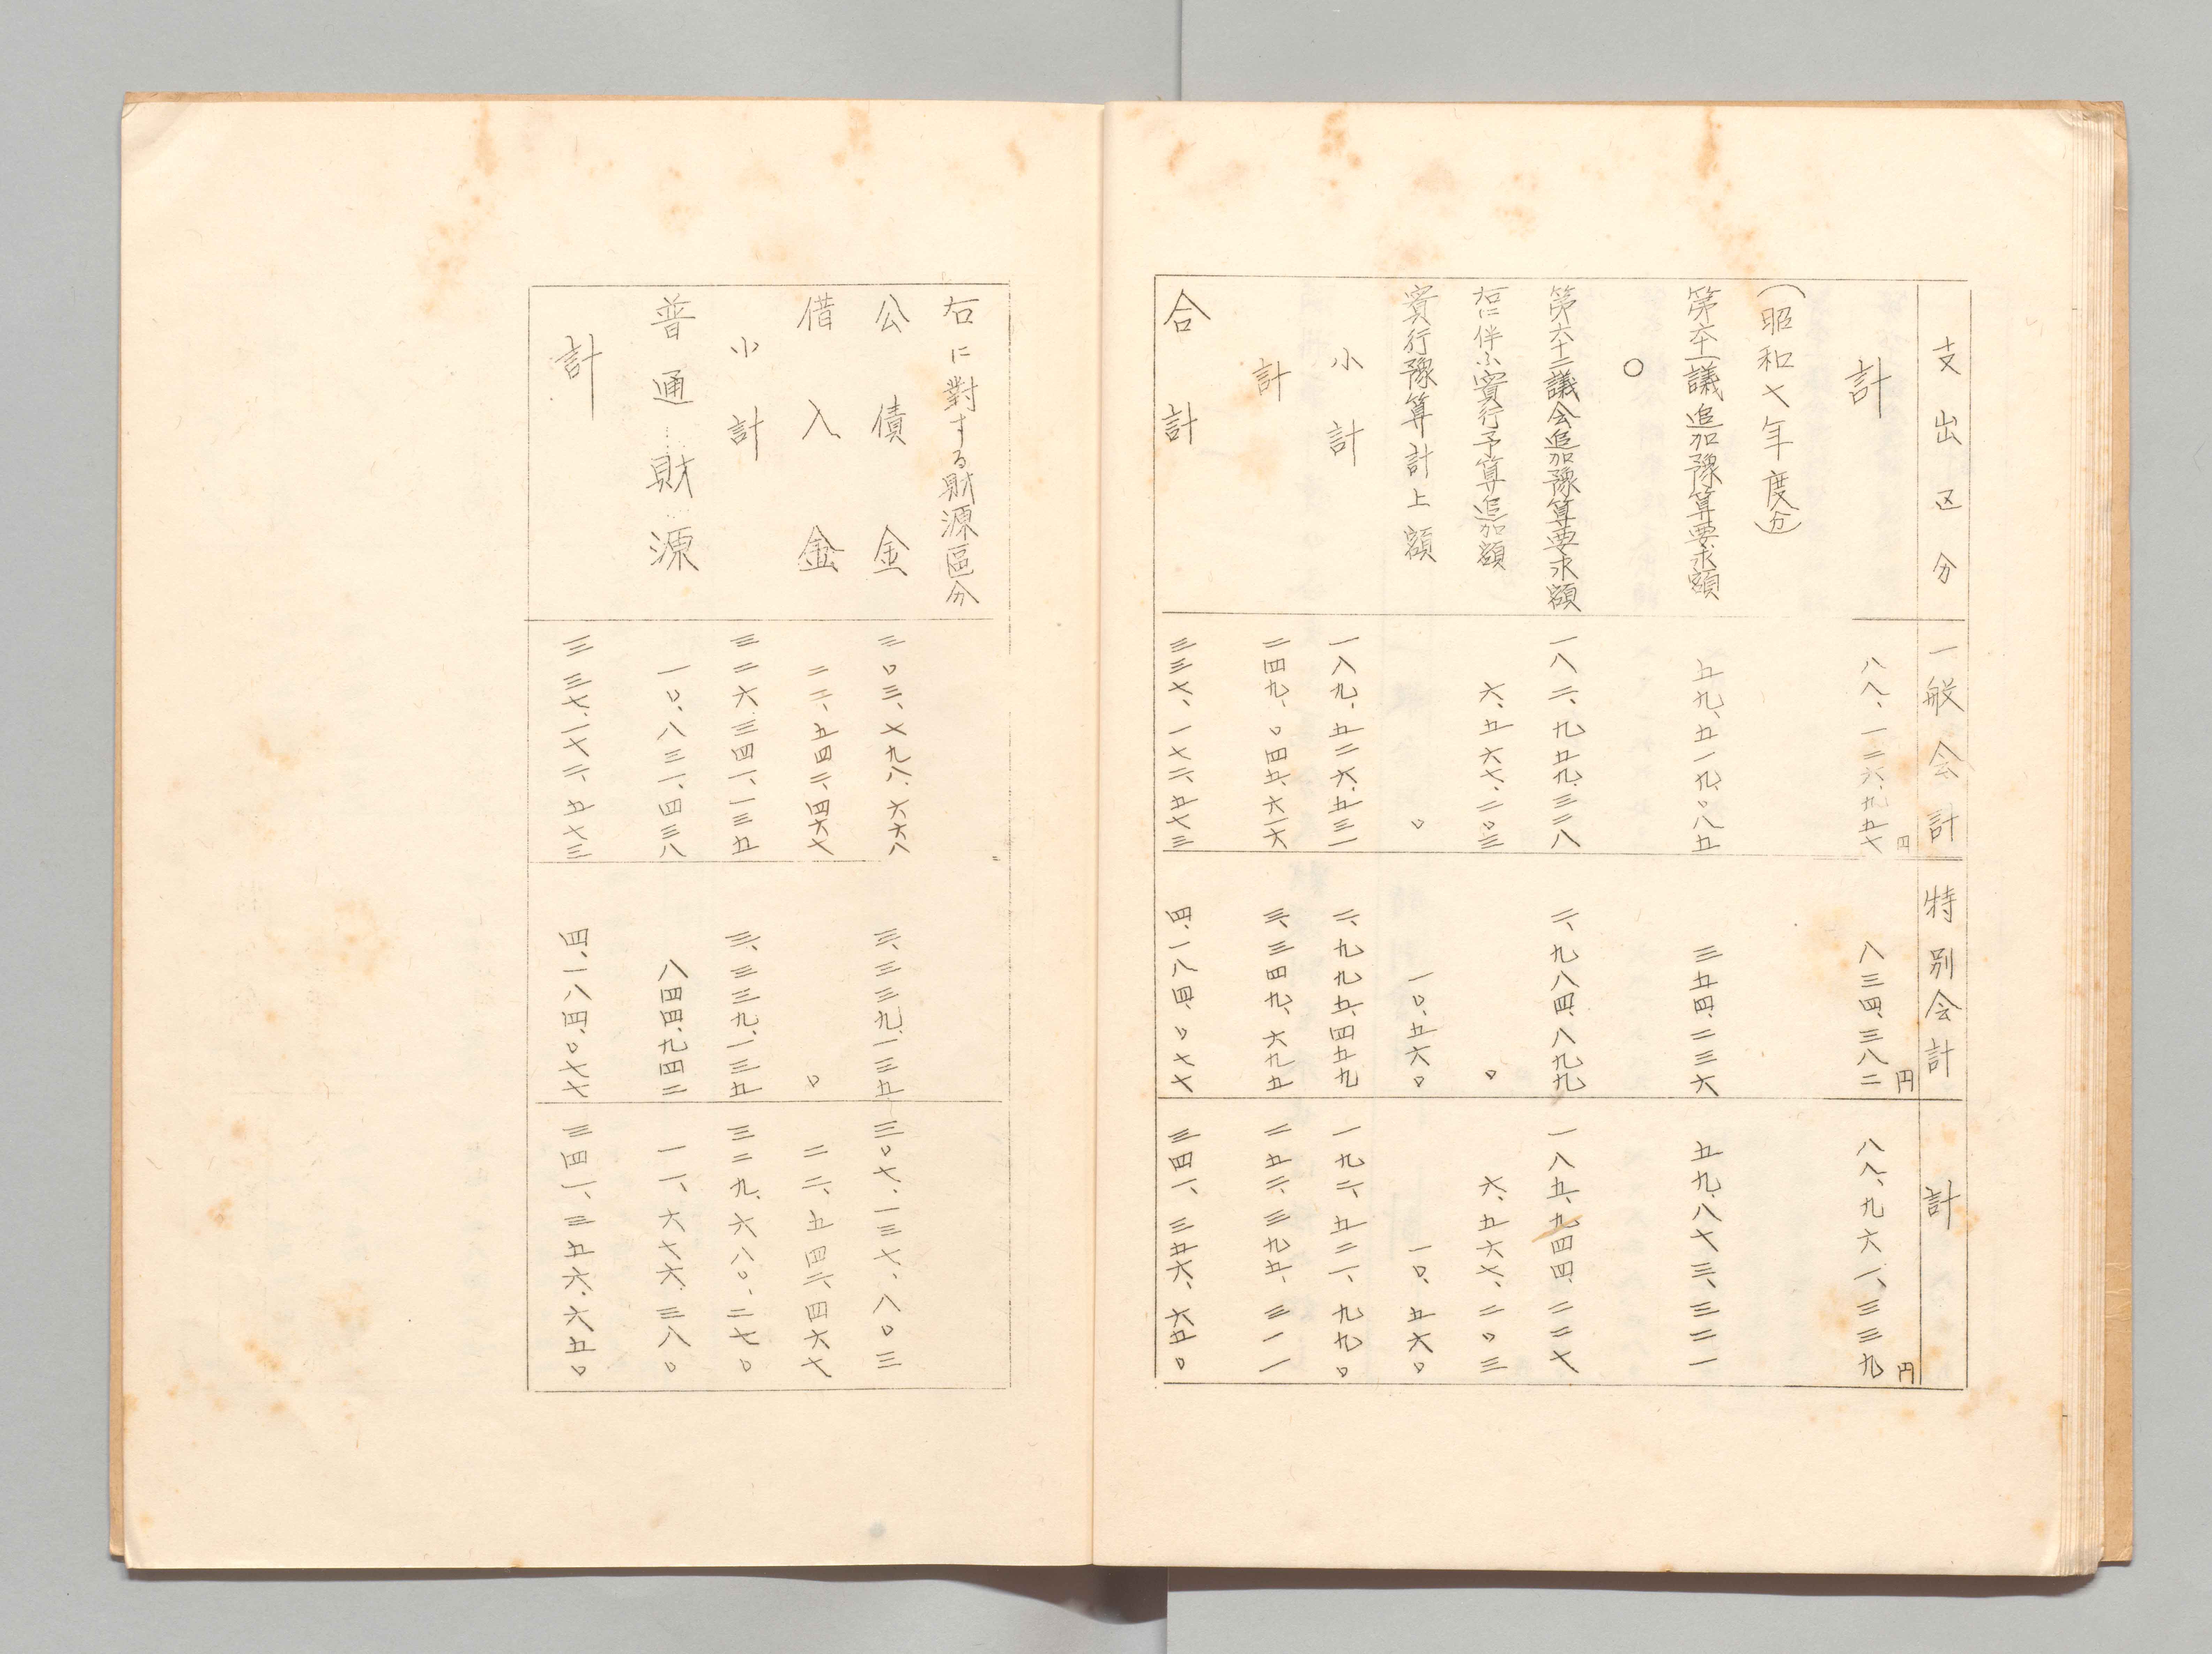 支出区分 一般会計 特別会計 計
計 八八、一二六、九五七円 八三四、三八二円 八八、九六一、三三九円
(昭和七年度分)
第六十一議追加豫算要求額 五九、五一九、〇八五 三五四、二三六 五九、八七三、三二一
〇
第六十二議会追加豫算要求額 一八二、九五九、三二八 二、九八四、八九九 一八五、九四四、二二七
右に伴ふ實行予算追加額 六、五六七、二〇三 〇 六、五六七、二〇三
實行豫算計上額 〇 一〇、五六〇 一〇、五六〇
小計 一八九、五二六、五三一 二、九九五、四五九 一九二、五二一、九九〇
計 二四九、〇四五、六一六 三、三四九、六九五 二五二、三九五、三一一
合計 三三七、一七二、五七三 四、一八四、〇七七 三四一、三五六、六五〇
右に對する財源區分
公債金 三〇三、七九八、六六八 三、三三九、一三五 三〇七、一三七、八〇三
借入金 二二、五四二、四六七 〇 二二、五四二、四六七
小計 三二六、三四一、一三五 三、三三九、一三五 三二九、六八〇、二七〇
普通財源 一〇、八三一、四三八 八四四、九四二 一一、六七六、三八〇
計 三三七、一七二、五七三 四、一八四、〇七七 三四一、三五六、六五〇